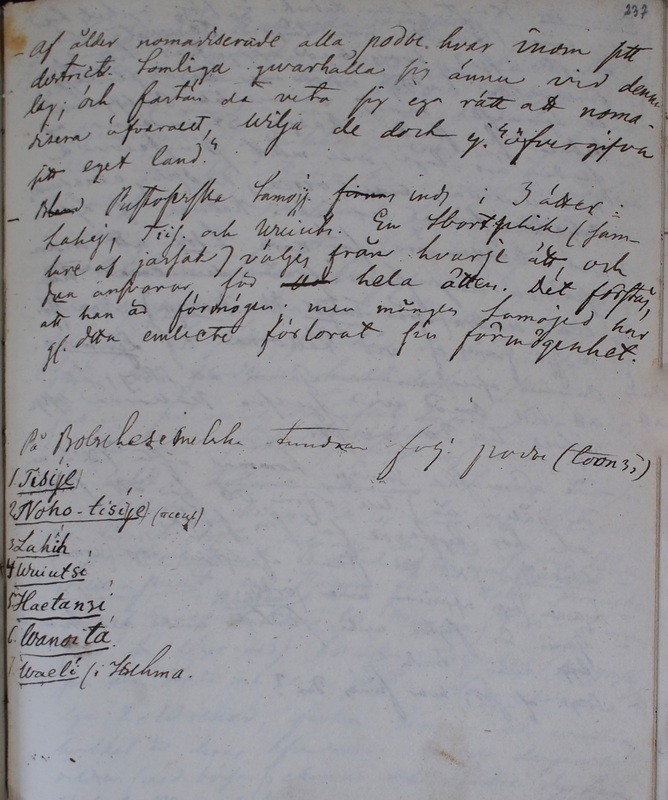 237
- Af ålder nomadiserade alla podv. hvar inom sitt
district. Somliga qvarhålla sig ännu vid denna
lag; och fastän de veta sig ega rätt att noma-
disera öfverallt, vilja de doch ej "öfvergifva
sitt eget land."
- Pustoserska Samoj. inds i 3 ätter:
Lahej, Tis. och Wuiuts. En Sbortschik (sam-
lare af jassak) väljes från hvarje ätt, och
den ansvarar för hela ätten. Det förstås,
att han är förmögen: men mången Samojed har
gf. detta embete förlorat sin förmögenhet.
På Bolschesemelska tundran följ. podv. (toons;)
1. Tisije
2. Noho-tisije)
3. Lahih
4. Wuiutsi
5. Haetansi
6. Wanoita
7. Waeli (i Ischma.